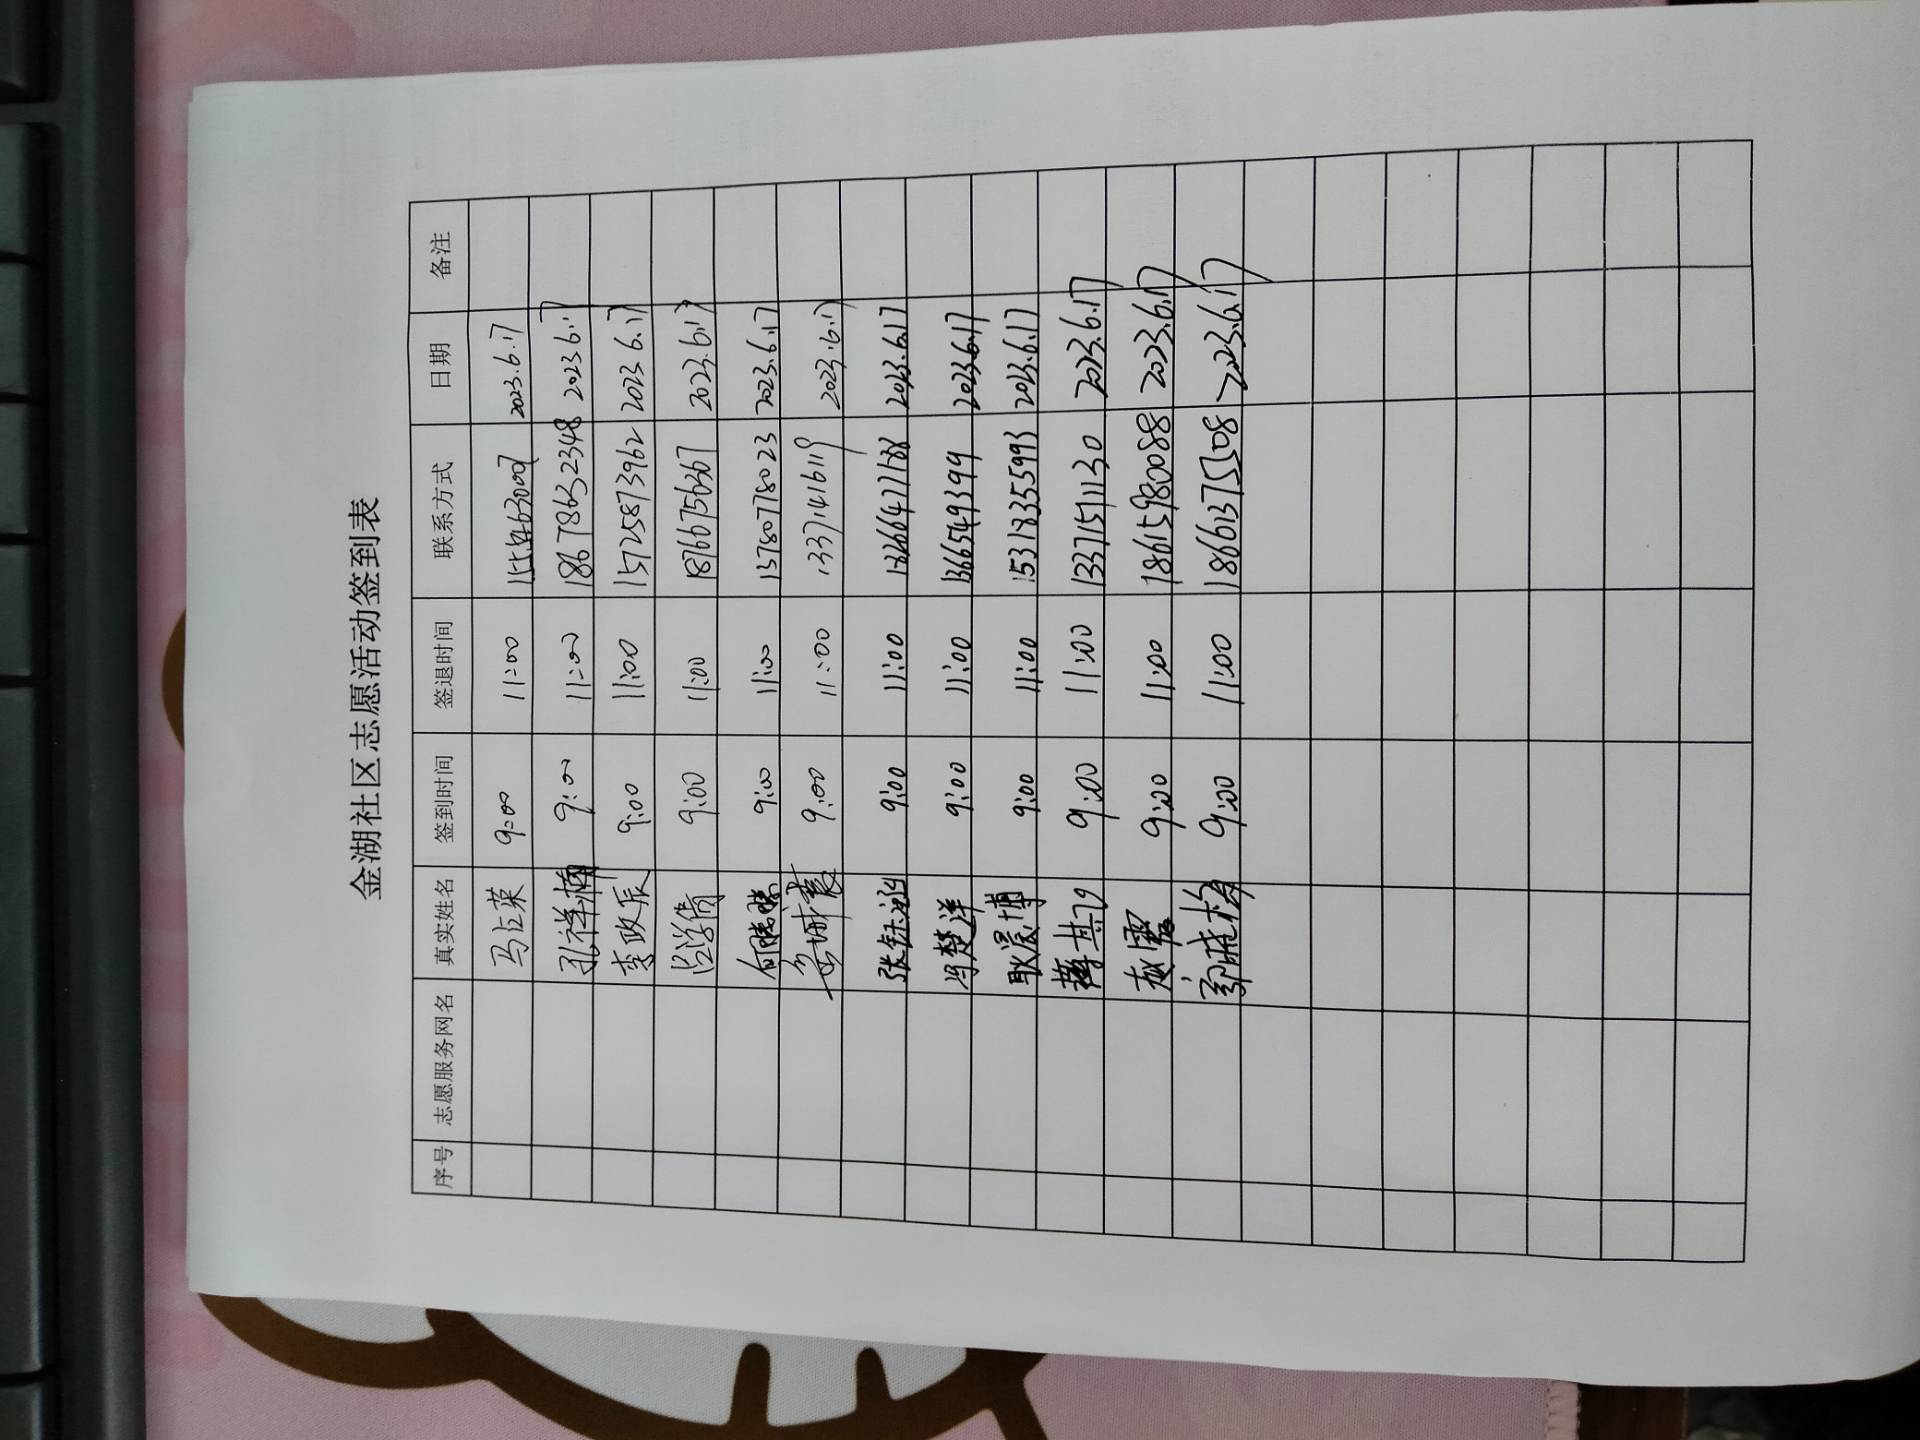 金湖社区志愿活动签到表
序号 志愿服务网名 真实姓名 签到时间 签退时间 联系方式 日期 备注
马占菜 9:00 11:00 2023.6.17
孔祥楠 9:00 11:00 18678632348 2023 6.17
李政辰 9:00 11:00 15725873962 2023 6.17
吕学倩 9:00 11:00 18766756367 2023.6.17
9:00 11:00 13780778023 2023.6.17
9:00 11:00 13371416119 2023.6.17
9:00 11:00 2023.6.17
冯楚洋 9:00 11:00 1366549399 2023.6.17
耿晨博 9:00 11:00 15318355993 2023.6.17
9:00 11:00 13371511130 2023.6.17
赵雪 9:00 11:00 18615980088 2023.6.17
9:00 11:00 18661375508 2023.6.17